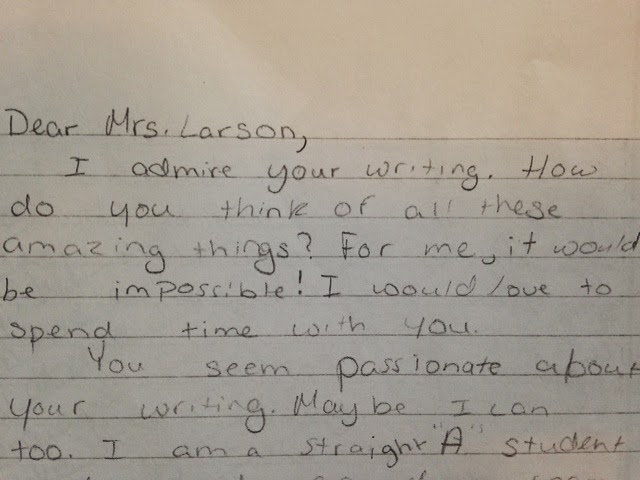 Dear Mrs. Larson,
I admire your writing. How
do you think of all these
amazing things? For me, it would
be impossible! I would love to
spend time with you.
You seem passionate about
your writing. Maybe I can
too. I am a straight "A" student